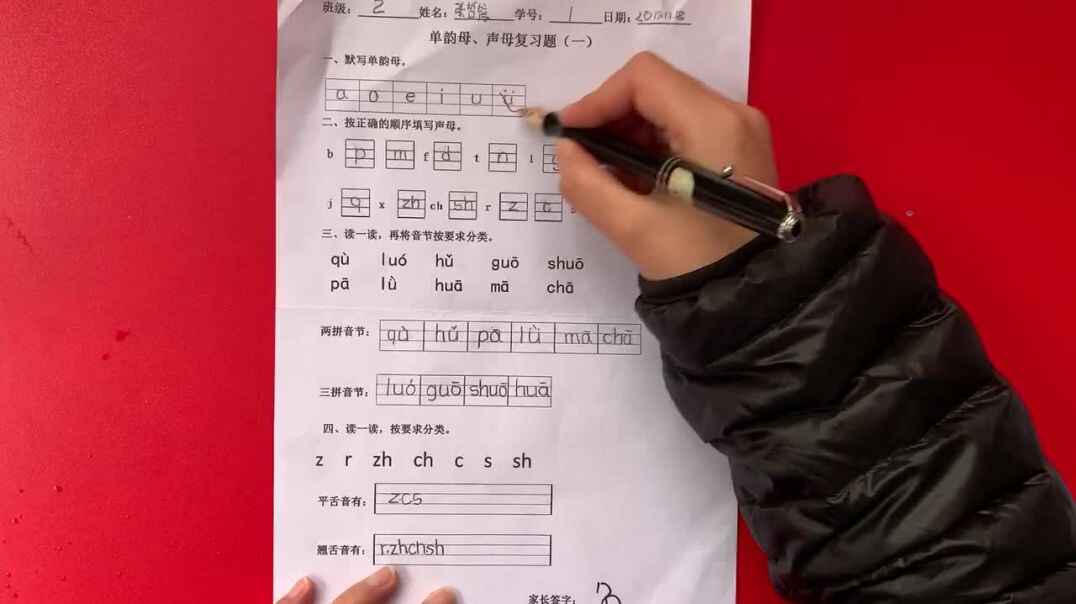 班级： 2 姓名： 学号： 1 日期：
单韵母、声母复习题（一）
一、默写单韵母。
a o e i u ü
二、按正确的顺序填写声母。
b p m f d t n l g
j q x zh ch sh r z c
三、读一读，再将音节按要求分类。
qù luó hǔ guō shuō
pā lǜ huā mā chā
两拼音节： qù hǔ pā lǜ mā chā
三拼音节： luó guō shuō huā
四、读一读，按要求分类。
z r zh ch c s sh
平舌音有： z c s
翘舌音有： r.zhchsh
家长签字：